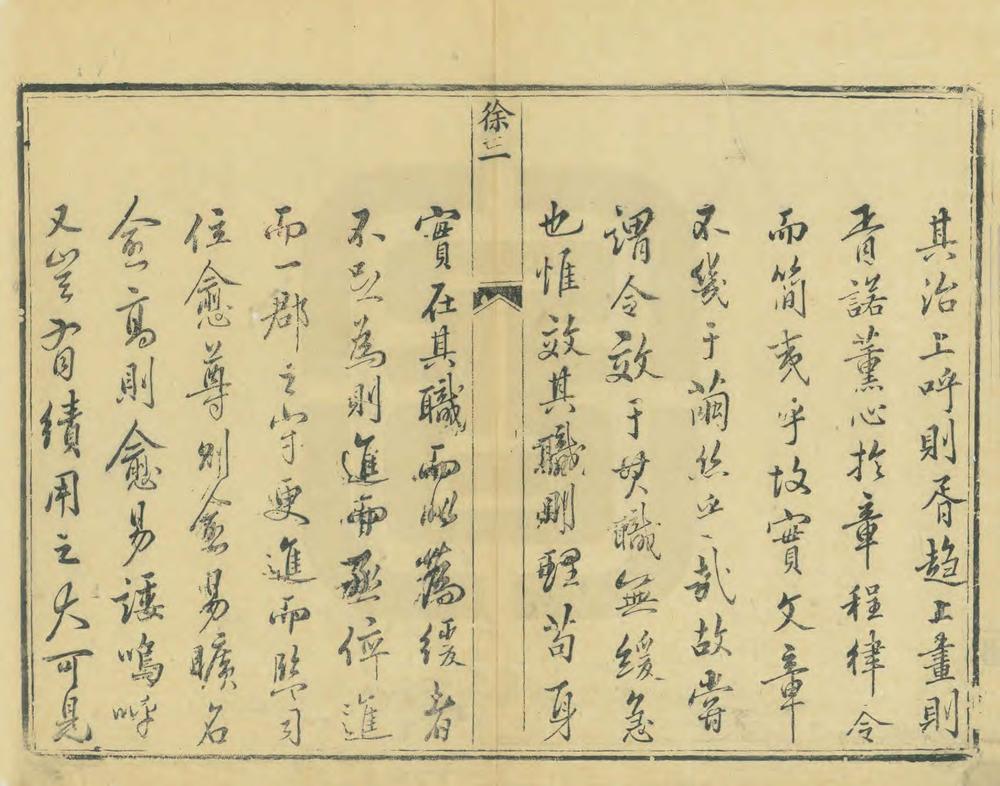 其治上呼則胥趨上畫則
胥諾薰心於章程律令
而簡夷乎故實文章
不幾于繭絲乎哉故嘗
謂令效于其職無緩急
也惟效其職則雖苟身
徐二
實在其職而以為緩者
不足為則進而丞倅進
而一郡之守更進而監司
位愈尊則愈易曠名
愈高則愈易諉嗚呼
又豈有績用之大可見